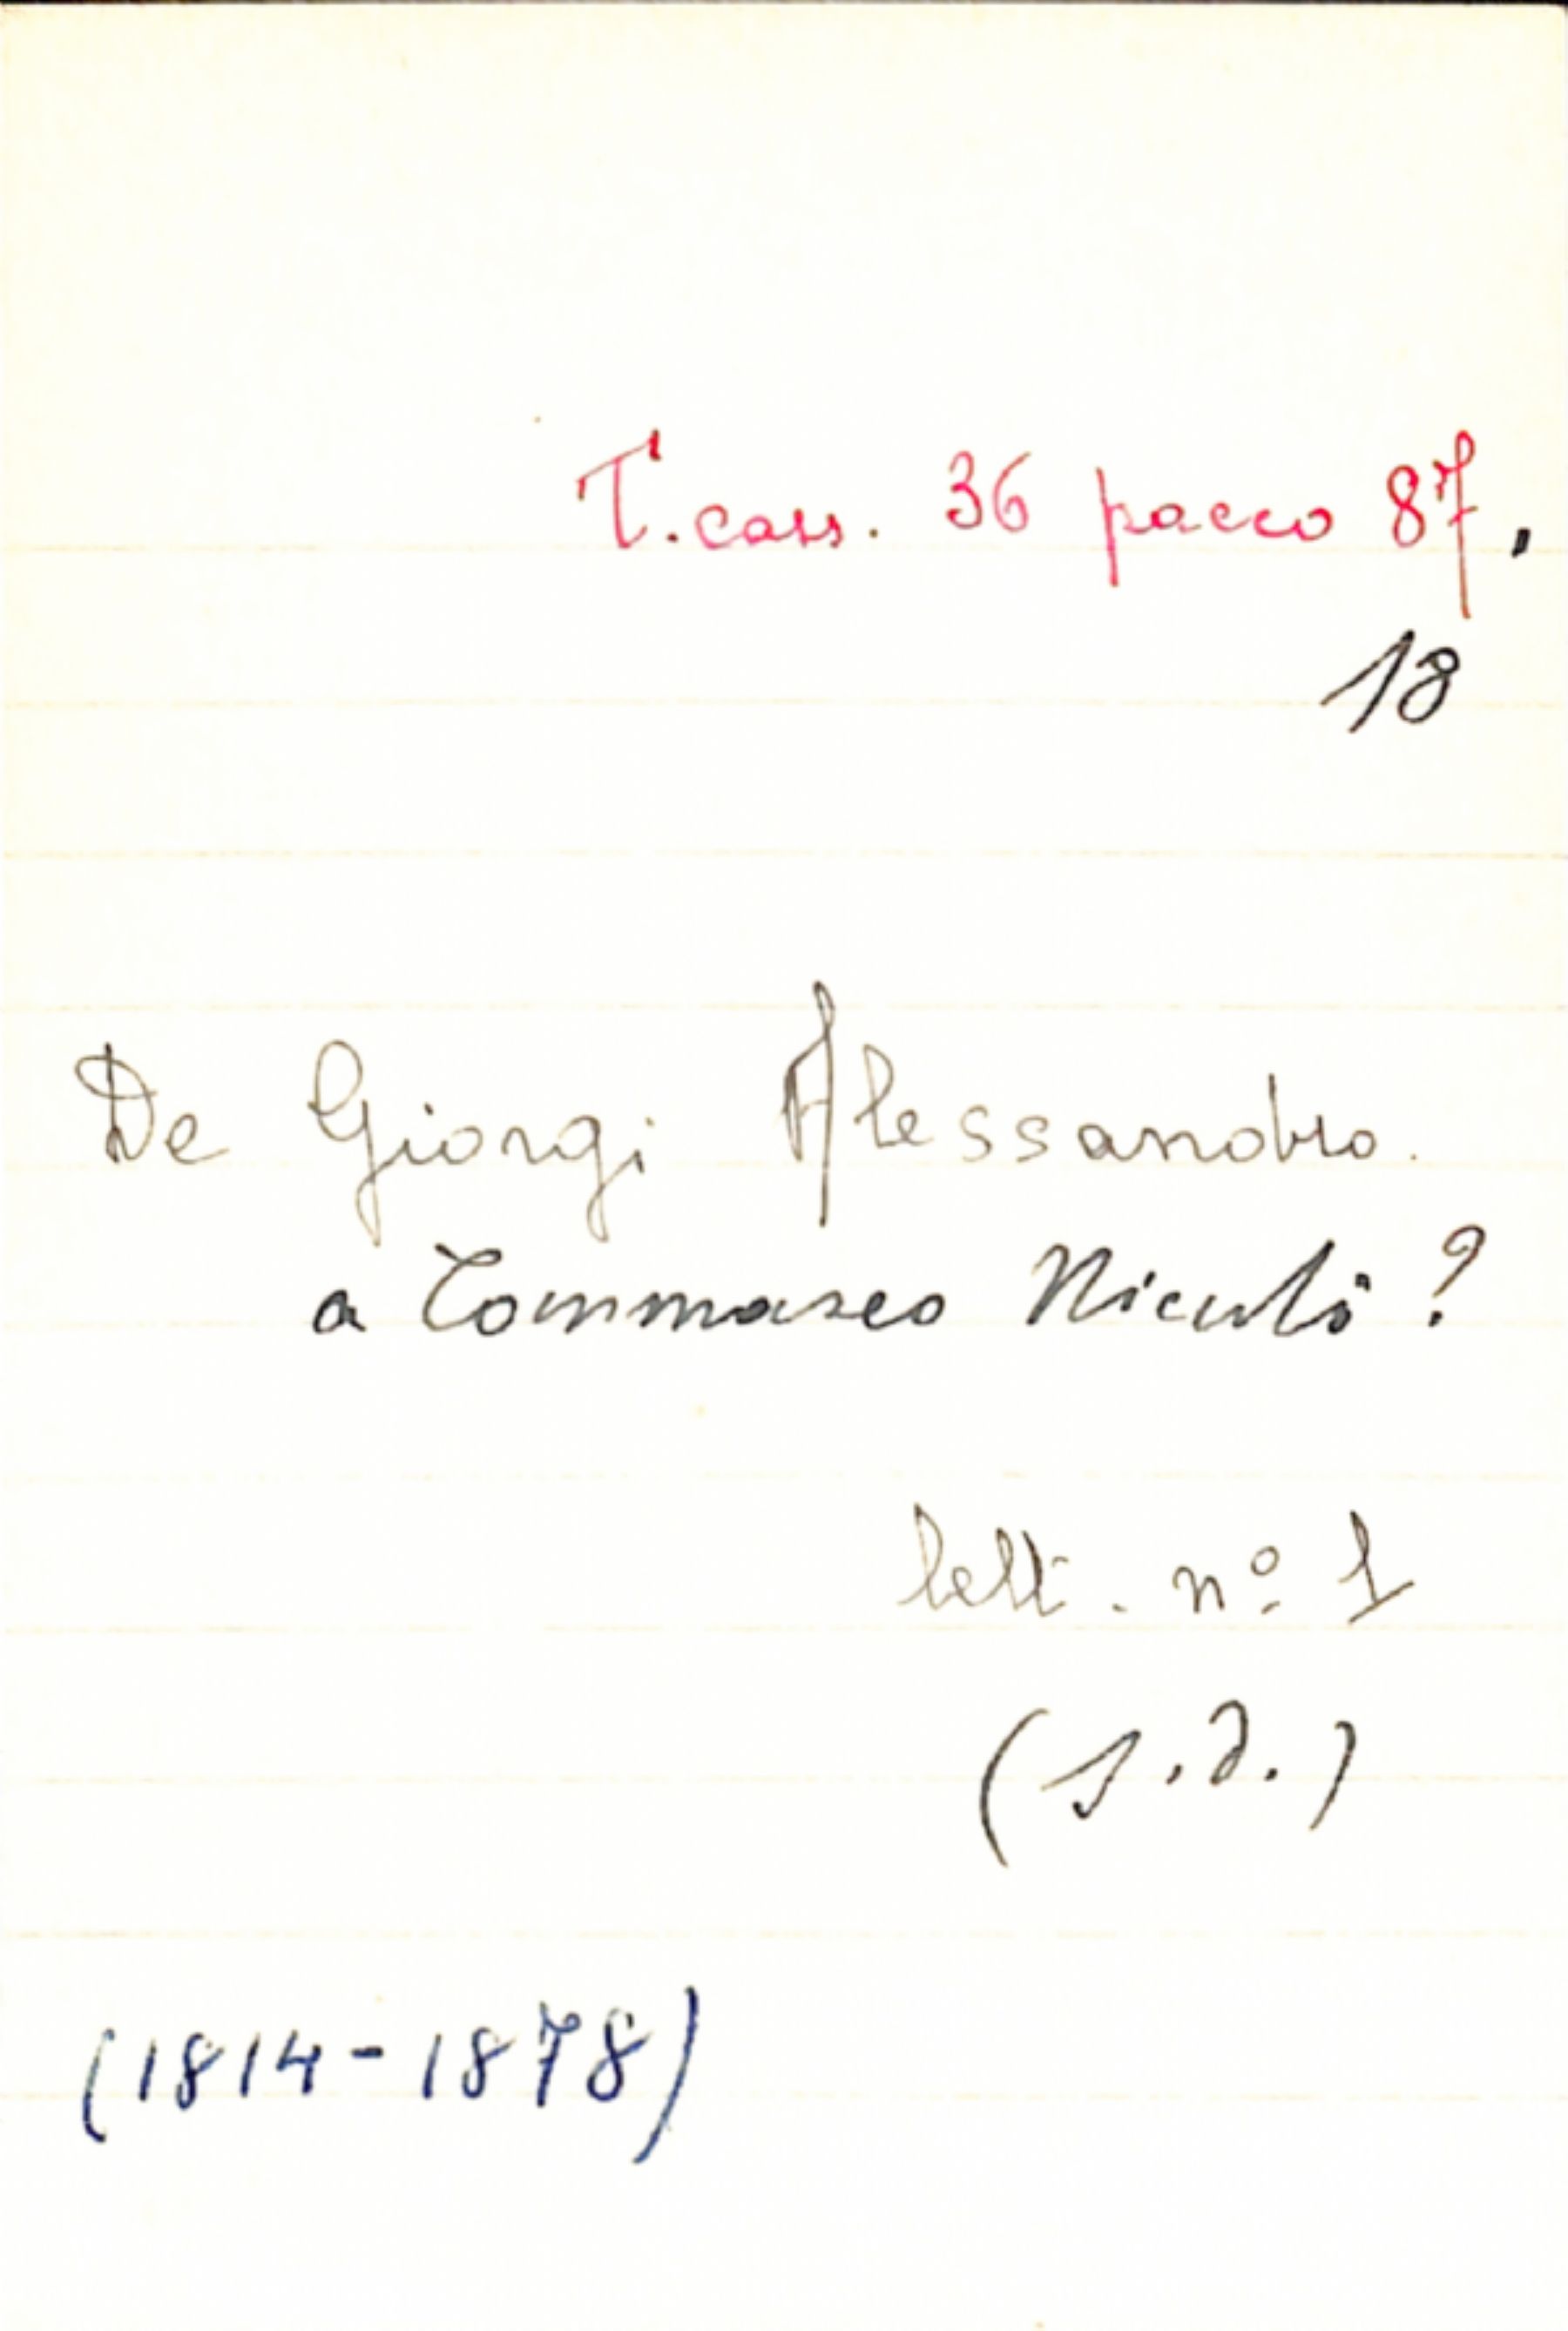 T. cass. 36 pacco 87,
18
De Giorgi Alessandro.
a Tommaseo Niccolò ?
lett. nº 1
(s.d.)
(1814-1878)